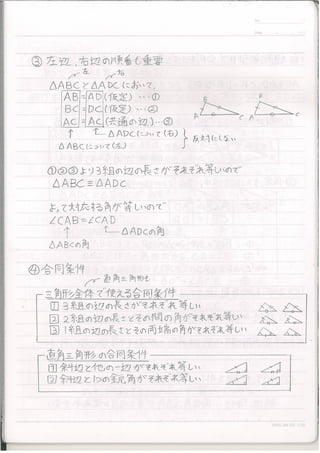 ③左辺、右辺の順番も重要
左 右
△ABCと△ADCにおいて、
AB=AD(仮定)…①
BC=DC(仮定)…②
AC=AC(共通の辺)…③
△ADCについて(右)
△ABCについて(左)
反対にしない
①②③より3組の辺の長さがそれぞれ等しいので
△ABC≡△ADC
よって対応する角が等しいので
∠CAB=∠CAD
△ADCの角
△ABCの角
④合同条件
直角三角形も
三角形全体で使える合同条件
1 3組の辺の長さがそれぞれ等しい
2 2組の辺の長さとその間の角がそれぞれ等しい
3 1組の辺の長さとその両端の角がそれぞれ等しい
直角三角形の合同条件
1 斜辺と他の一辺がそれぞれ等しい
2 斜辺と1つの鋭角がそれぞれ等しい